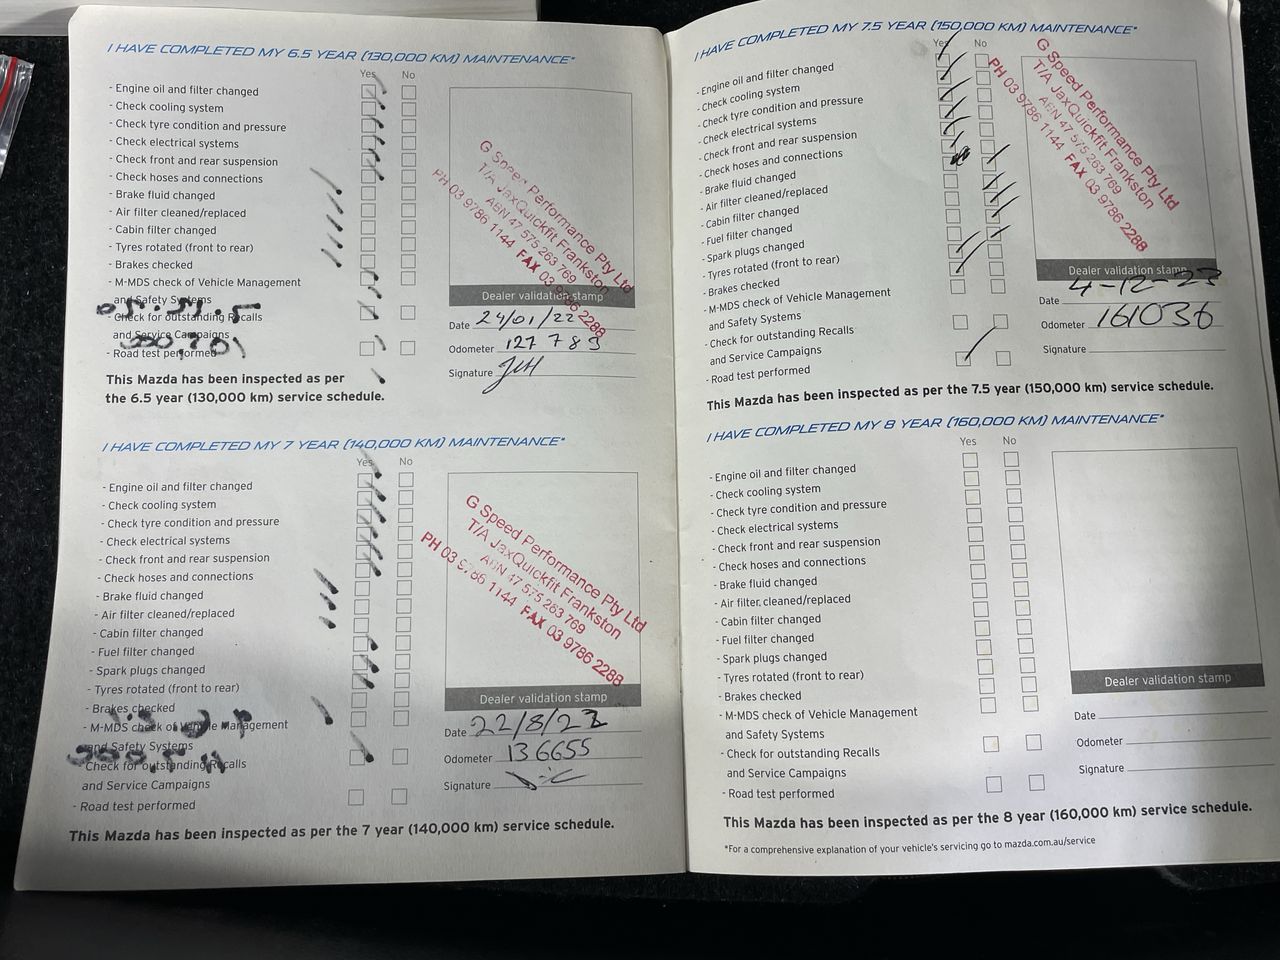 I HAVE COMPLETED MY 6.5 YEAR (130,000 KM) MAINTENANCE*
Yes No
- Engine oil and filter changed
- Check cooling system
- Check tyre condition and pressure
- Check electrical systems
- Check front and rear suspension
- Check hoses and connections
- Brake fluid changed
- Air filter cleaned/replaced
- Cabin filter changed
- Tyres rotated (front to rear)
- Brakes checked
- M-MDS check of Vehicle Management
and Safety Systems
- Check for outstanding Recalls
and Service Campaigns
- Road test performed
This Mazda has been inspected as per
the 6.5 year (130,000 km) service schedule.
G Speed Performance Pty Ltd
T/A JaxQuickfit Frankston
ABN 47 575 263 769
PH 03 9786 1144 FAX 03 9786 2288
Dealer validation stamp
Date 24/01/22
Odometer 127 783
Signature
I HAVE COMPLETED MY 7 YEAR (140,000 KM) MAINTENANCE*
Yes No
- Engine oil and filter changed
- Check cooling system
- Check tyre condition and pressure
- Check electrical systems
- Check front and rear suspension
- Check hoses and connections
- Brake fluid changed
- Air filter cleaned/replaced
- Cabin filter changed
- Fuel filter changed
- Spark plugs changed
- Tyres rotated (front to rear)
- Brakes checked
- M-MDS check of Vehicle Management
and Safety Systems
- Check for outstanding Recalls
and Service Campaigns
- Road test performed
This Mazda has been inspected as per the 7 year (140,000 km) service schedule.
G Speed Performance Pty Ltd
T/A JaxQuickfit Frankston
ABN 47 575 263 769
PH 03 9786 1144 FAX 03 9786 2288
Dealer validation stamp
Date
Odometer 136655
Signature
I HAVE COMPLETED MY 7.5 YEAR (150,000 KM) MAINTENANCE*
Yes No
- Engine oil and filter changed
- Check cooling system
- Check tyre condition and pressure
- Check electrical systems
- Check front and rear suspension
- Check hoses and connections
- Brake fluid changed
- Air filter cleaned/replaced
- Cabin filter changed
- Fuel filter changed
- Spark plugs changed
- Tyres rotated (front to rear)
- Brakes checked
- M-MDS check of Vehicle Management
and Safety Systems
- Check for outstanding Recalls
and Service Campaigns
- Road test performed
This Mazda has been inspected as per the 7.5 year (150,000 km) service schedule.
G Speed Performance Pty Ltd
T/A JaxQuickfit Frankston
ABN 47 575 263 769
PH 03 9786 1144 FAX 03 9786 2288
Dealer validation stamp
Date 4-12-23
Odometer 161036
Signature
I HAVE COMPLETED MY 8 YEAR (160,000 KM) MAINTENANCE*
Yes No
- Engine oil and filter changed
- Check cooling system
- Check tyre condition and pressure
- Check electrical systems
- Check front and rear suspension
- Check hoses and connections
- Brake fluid changed
- Air filter cleaned/replaced
- Cabin filter changed
- Fuel filter changed
- Spark plugs changed
- Tyres rotated (front to rear)
- Brakes checked
- M-MDS check of Vehicle Management
and Safety Systems
- Check for outstanding Recalls
and Service Campaigns
- Road test performed
Dealer validation stamp
Date
Odometer
Signature
This Mazda has been inspected as per the 8 year (160,000 km) service schedule.
*For a comprehensive explanation of your vehicle's servicing go to mazda.com.au/service